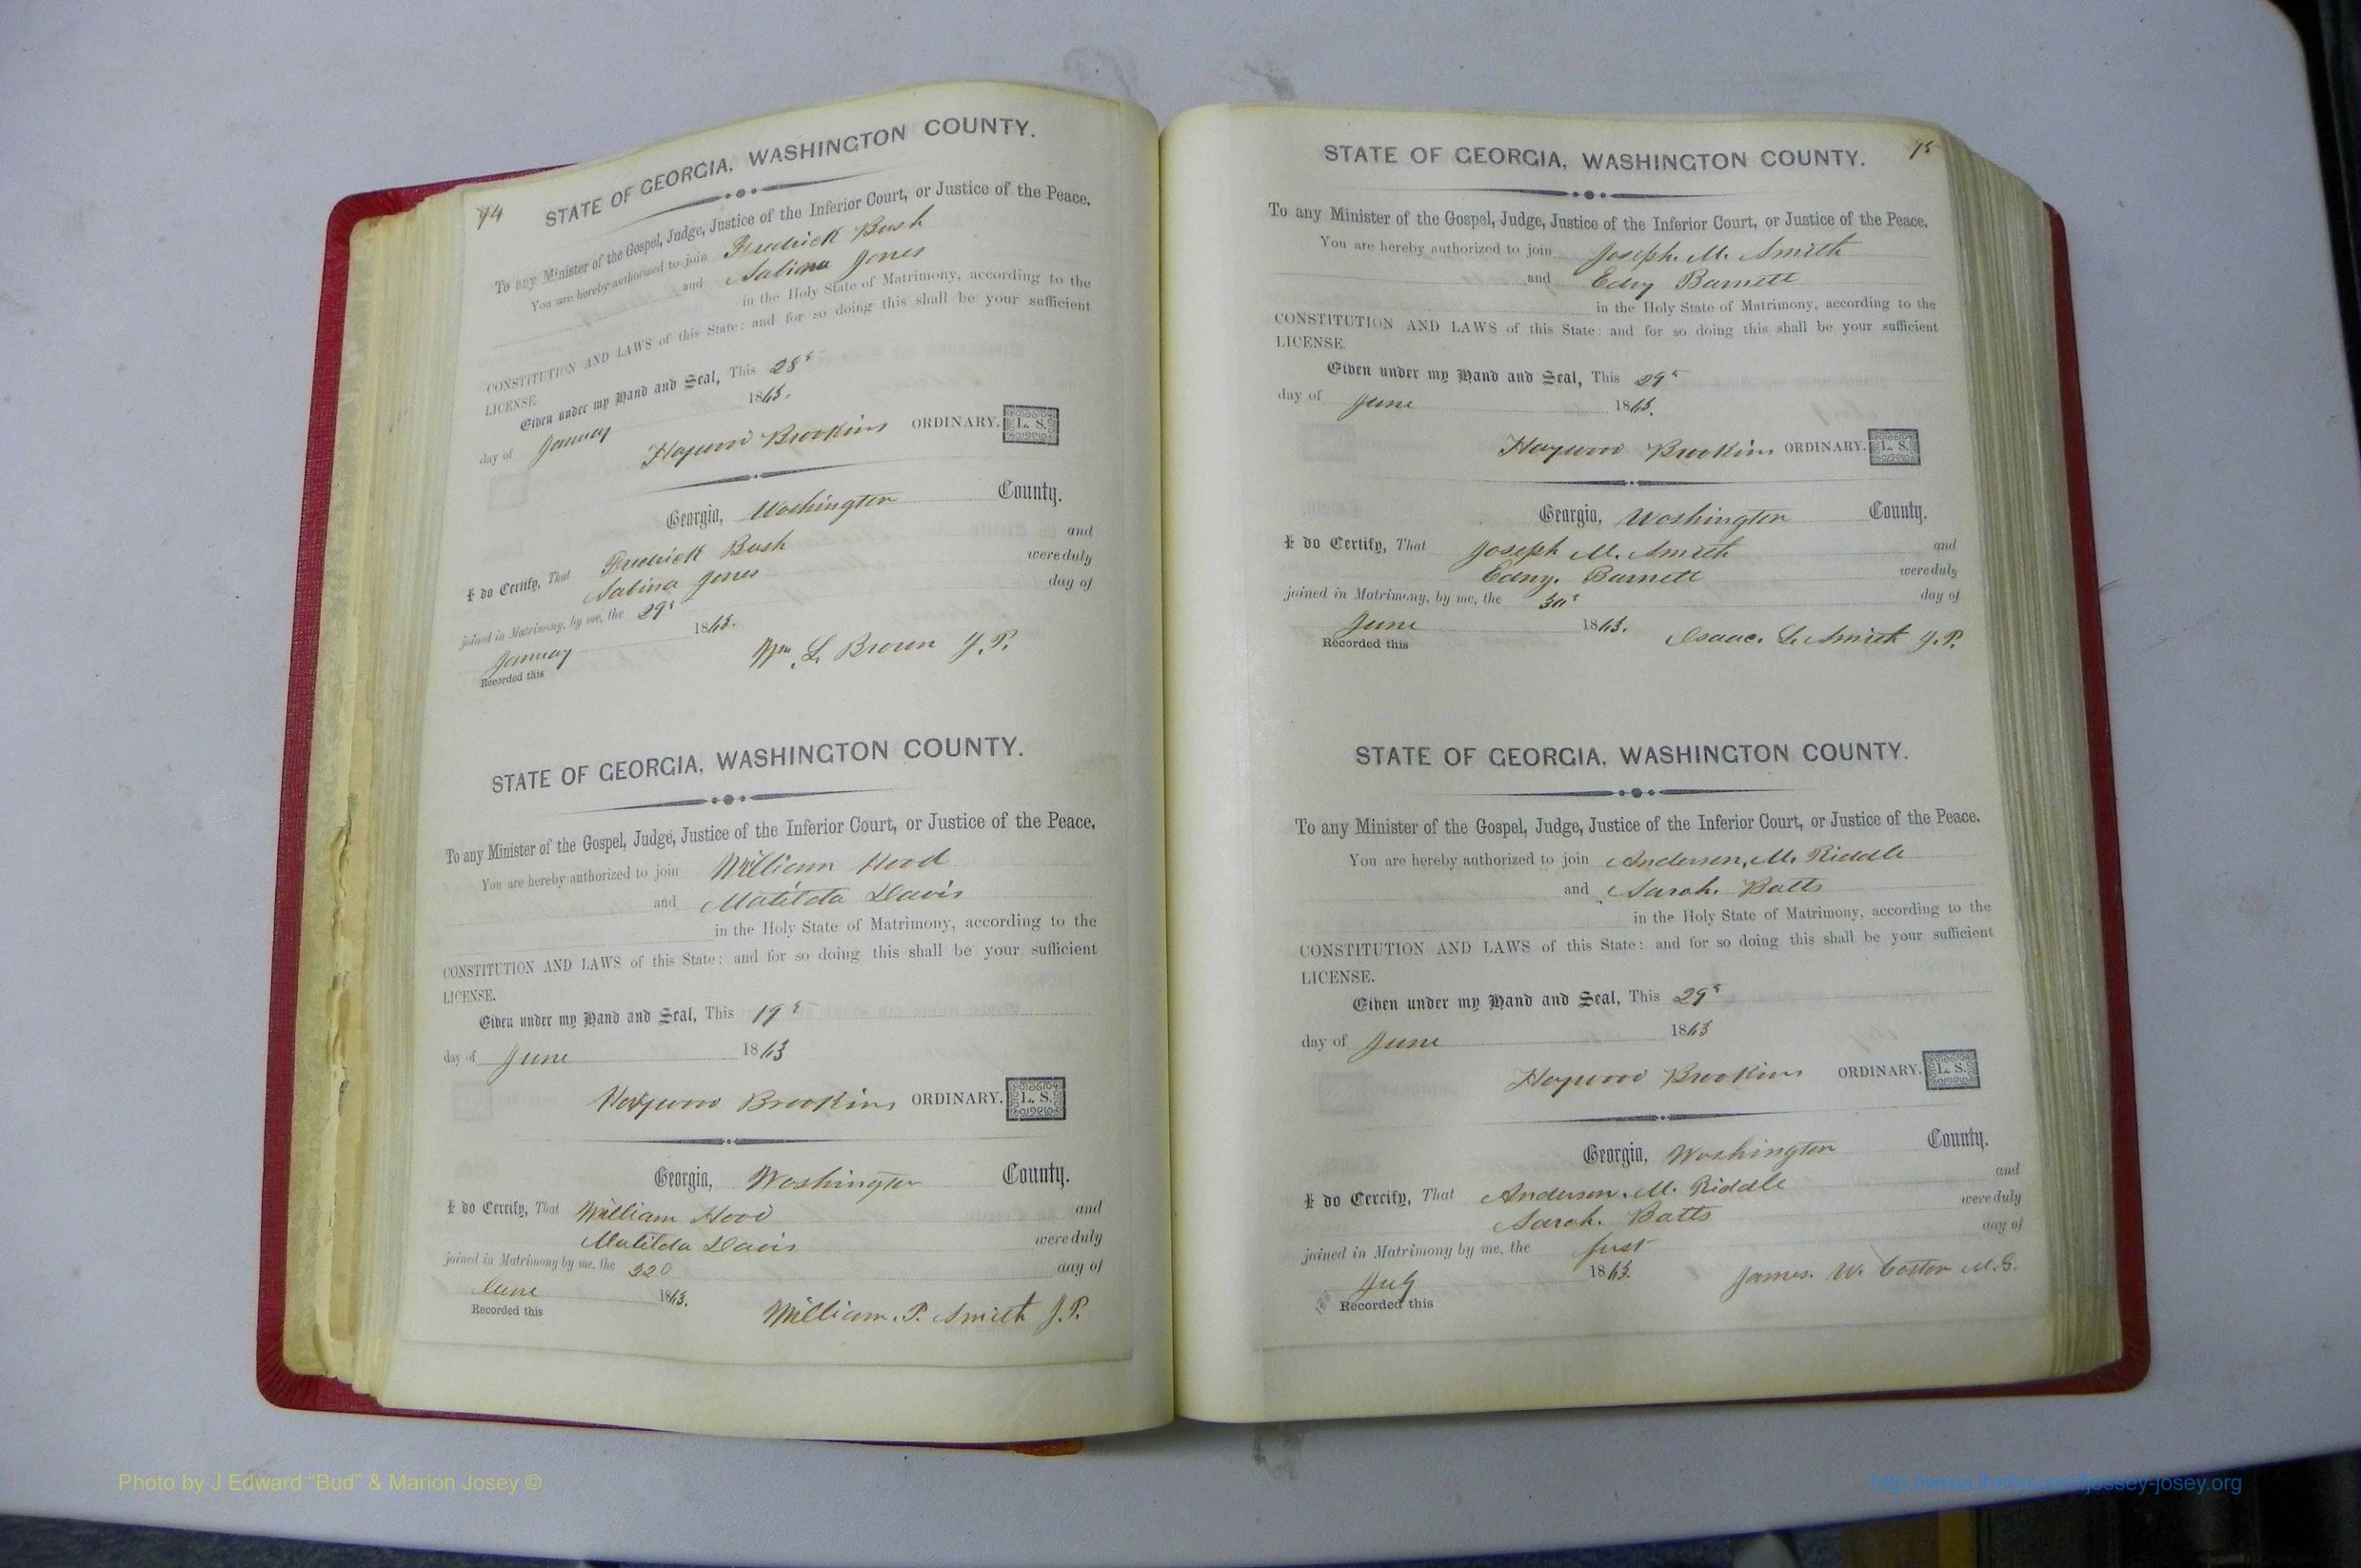 94
STATE OF GEORGIA, WASHINGTON COUNTY.
To any Minister of the Gospel, Judge, Justice of the Inferior Court, or Justice of the Peace.
You are hereby authorized to join Fredrick Bush
and Sabina Jones
in the Holy State of Matrimony, according to the
CONSTITUTION AND LAWS of this State: and for so doing this shall be your sufficient
LICENSE.
Given under my Hand and Seal, This 28
day of January 1863.
Haywood Brookins ORDINARY. L. S.
Georgia, Washington County.
I do Certify, That Fredrick Bush and
Sabina Jones were duly
joined in Matrimony, by me, the 29 day of
January 1863.
Recorded this
Wm L. Brown J. P.
STATE OF GEORGIA, WASHINGTON COUNTY.
To any Minister of the Gospel, Judge, Justice of the Inferior Court, or Justice of the Peace.
You are hereby authorized to join William Hood
and Matilda Davis
in the Holy State of Matrimony, according to the
CONSTITUTION AND LAWS of this State: and for so doing this shall be your sufficient
LICENSE.
Given under my Hand and Seal, This 19
day of June 1863
Haywood Brookins ORDINARY. L. S.
Georgia, Washington County.
I do Certify, That William Hood and
Matilda Davis were duly
joined in Matrimony by me, the day of
June 1863.
Recorded this
William. P. Smith J. P.
STATE OF GEORGIA, WASHINGTON COUNTY. 95
To any Minister of the Gospel, Judge, Justice of the Inferior Court, or Justice of the Peace.
You are hereby authorized to join Joseph. M. Smith
and Edny Barnett
in the Holy State of Matrimony, according to the
CONSTITUTION AND LAWS of this State: and for so doing this shall be your sufficient
LICENSE.
Given under my Hand and Seal, This 29
day of June 1863.
Haywood Brookins ORDINARY. L. S.
Georgia, Washington County.
I do Certify, That Joseph M. Smith and
Edny. Barnett were duly
joined in Matrimony, by me, the 30 day of
June 1863.
Isaac. L. Smith J. P.
Recorded this
STATE OF GEORGIA, WASHINGTON COUNTY.
To any Minister of the Gospel, Judge, Justice of the Inferior Court, or Justice of the Peace.
You are hereby authorized to join Anderson. M. Riddle
and Sarah. Batts
in the Holy State of Matrimony, according to the
CONSTITUTION AND LAWS of this State: and for so doing this shall be your sufficient
LICENSE.
Given under my Hand and Seal, This 29
day of June 1863
Haywood Brookins ORDINARY. L. S.
Georgia, Washington County.
I do Certify, That Anderson. M. Riddle and
Sarah. Batts were duly
joined in Matrimony by me, the first day of
July 1863.
James. W. M. G.
Recorded this
Photo by J Edward “Bud” & Marion Josey ©